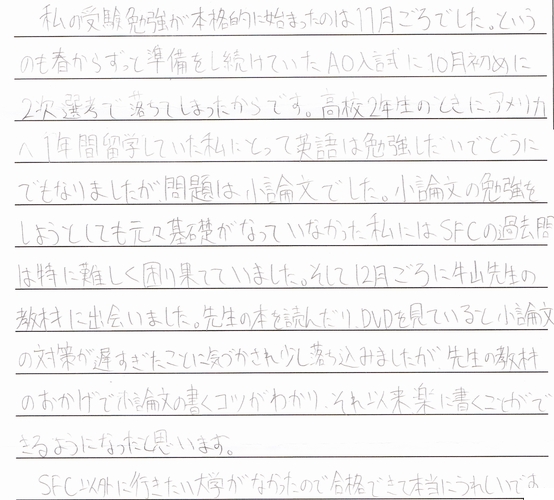 私の受験勉強が本格的に始まったのは11月ごろでした。という
のも春からずっと準備をし続けていたAO入試に10月初めに
2次選考で落ちてしまったからです。高校2年生のときに、アメリカ
へ1年間留学していた私にとって英語は勉強しだいでどうに
でもなりましたが、問題は小論文でした。小論文の勉強を
しようとしても元々基礎がなっていなかった私にはSFCの過去問
は特に難しく困り果てていました。そして12月ごろに牛山先生の
教材に出会いました。先生の本を読んだり、DVDを見ていると、小論文
の対策が遅すぎたことに気づかされ少し落ち込みましたが、先生の教材
のおかげで小論文の書くコツがわかり、それ以来楽に書くことがで
きるようになったと思います。
SFC以外に行きたい大学がなかったので合格できて本当にうれしいです